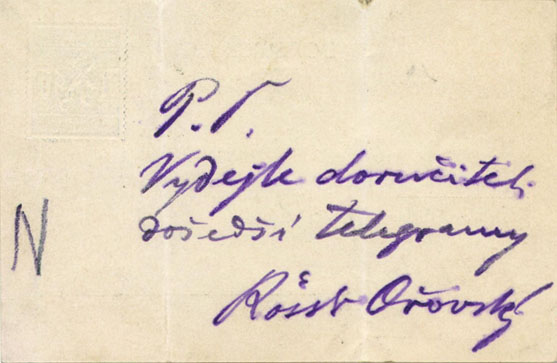 P.T.
Vydejte doručiteli
došedší telegramy
N
Rössl Ořovský